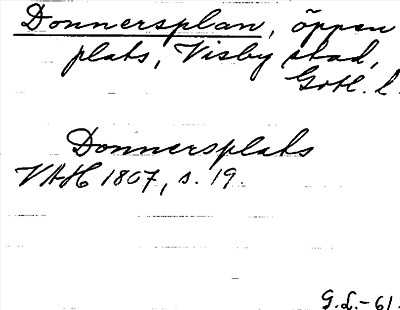 Donnersplan, öppen
plats, Visby stad,
Gotl. l.
Donnersplats
VAH 1807, s. 19.
G.L.-61.